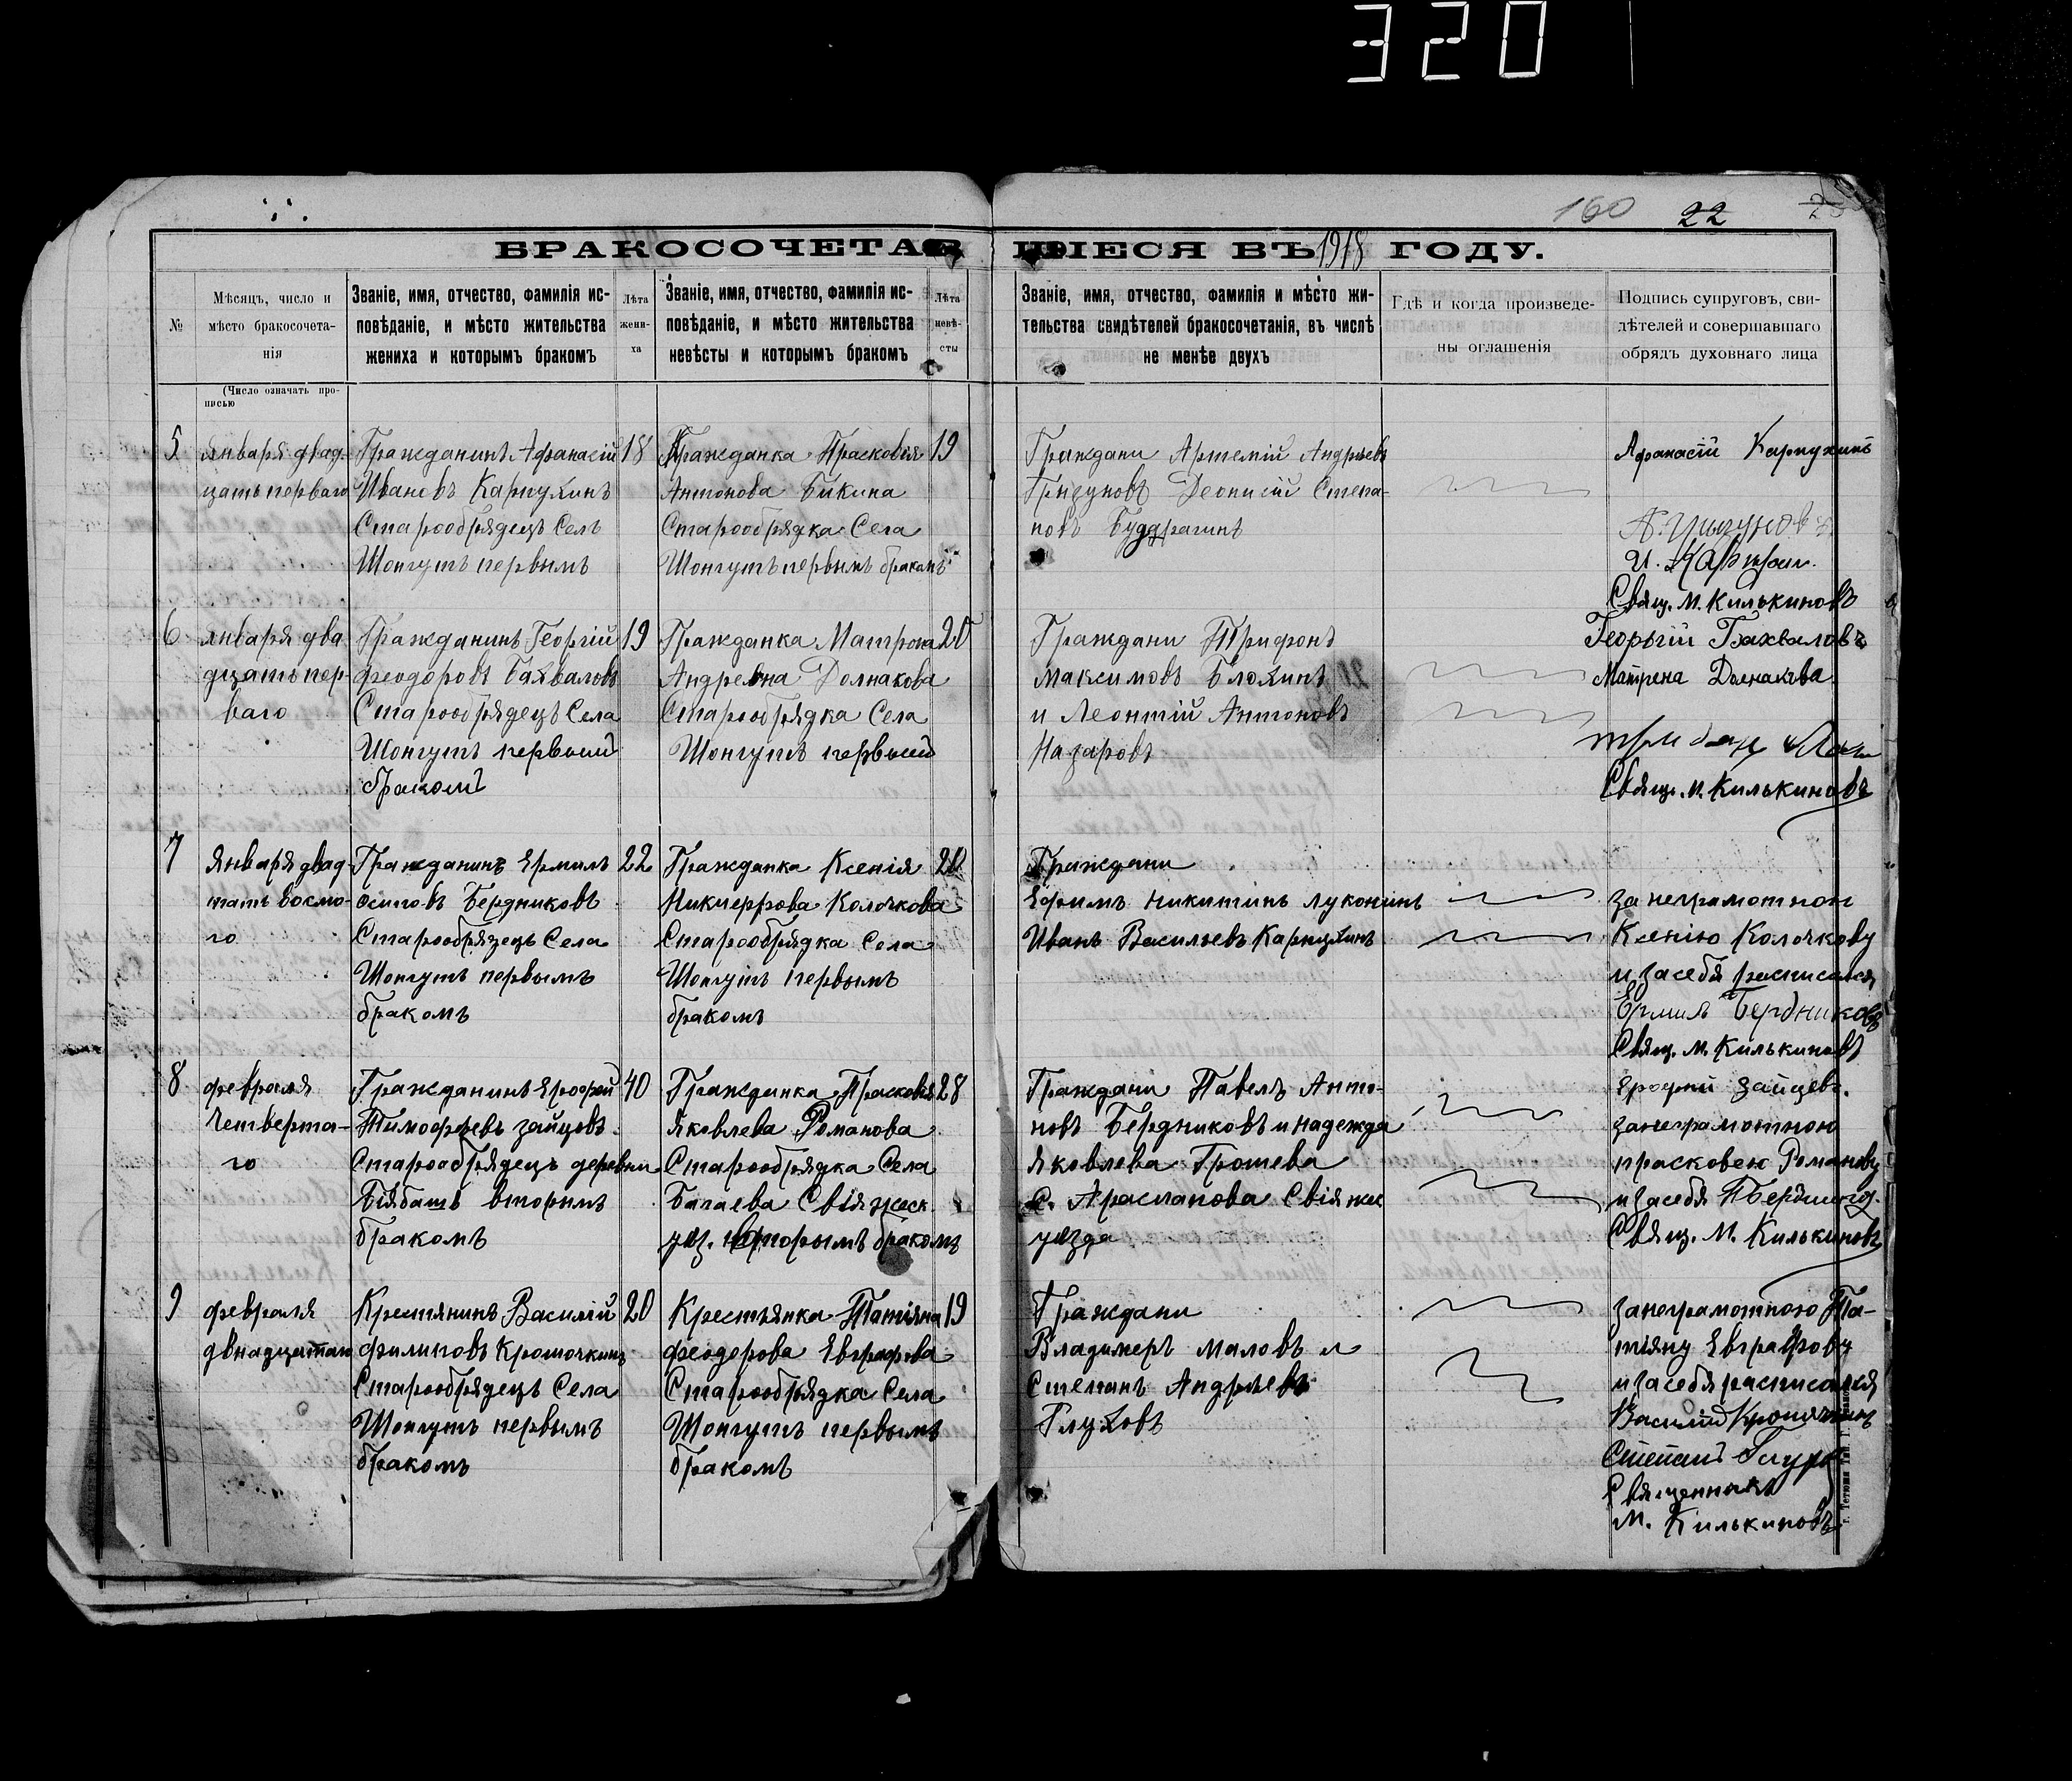 320
160 22
БРАКОСОЧЕТАВШІЕСЯ ВЪ 1918 ГОДУ.
№
Мѣсяцъ, число и
мѣсто бракосочета-
нія
Званіе, имя, отчество, фамилія ис-
повѣданіе, и мѣсто жительства
жениха и которымъ бракомъ
Лѣта
жени-
ха
Званіе, имя, отчество, фамилія ис-
повѣданіе, и мѣсто жительства
невѣсты и которымъ бракомъ
Лѣта
невѣ-
сты
Званіе, имя, отчество, фамилія и мѣсто жи-
тельства свидѣтелей бракосочетанія, въ числѣ
не менѣе двухъ
Гдѣ и когда произведе-
ны оглашенія
Подпись супруговъ, сви-
дѣтелей и совершавшаго
обрядъ духовнаго лица
(Число означать про-
писью
5
января двад-
цать перваго
Гражданинъ Афанасій
Ивановъ Карпухинъ
Старообрядецъ Селъ
Шонгутъ первымъ
18
Гражданка Прасковія
Антонова Бикина
Старообрядка Села
Шонгутъ первымъ бракомъ
19
Граждани Артемій Андрѣевъ
Грызуновъ Деонисій Степа-
новъ Буддрагинъ
Афанасій Карпухинъ
А. Грызуновъ
Свящ. М. Килькиновъ
6
января два
дцать пер-
ваго
Гражданинъ Георгій
Феодоровъ Бахваловъ
Старообрядецъ Села
Шонгутъ первый
бракомъ
19
Гражданка Матрона
Андревна Долнакова
Старообрядка Села
Шонгутъ первый
20
Граждани Трифонъ
Максимовъ Блохинъ
и Леонтій Антоновъ
Назаровъ
Георьгій Бахваловъ
Матрена Долнакова
Свящ. М. Килькиновъ
7
Января двад-
цать восмо-
го
Гражданинъ Ермилъ
Осиповъ Бердниковъ
Старообрязецъ Села
Шонгутъ первымъ
бракомъ
22
Гражданка Ксенія
Никчеррова Колочкова
Старообрядка Села
Шонгутъ первымъ
бракомъ
20
Граждани
Ефимъ Никитинъ Луконинъ
Иванъ Васильевъ Карпухинъ
за неграмотною
Ксенію Колочкову
и засебя расписался
Ермилъ Бердниковъ
Свящ. М. Килькиновъ
8
февраля
Четверта-
го
Гражданинъ Ерофей
Тимофѣевъ зайцовъ
Старообрядецъ деревни
Бязбатъ вторымъ
бракомъ
40
Гражданка Прасковія
Яковлева Романова
Старообрядка Села
Багаева Свіяжск
уѣз. вторымъ бракомъ
28
Граждани Павелъ Анто-
новъ Бердниковъ и надежда
Яковлева Грошева
С. Арасланова Свіяжс
уезда
Ерофей зайцевъ.
занеграмотною
прасковею Романову
и засебя П Бердников
Свящ. М. Килькиновъ
9
февраля
двнадцатаго
Крестянинъ Василій
филиповъ Кропочкинъ
Старообрядецъ Села
Шонгутъ первымъ
бракомъ
20
Крестьянка Татіяна
феодорова Евграфова
Старообрядка Села
Шонгутъ первымъ
бракомъ
19
Граждани
Владимеръ маловъ и
Степанъ Андрѣевъ
Глуховъ
занеграмотною Та-
тіяну Евграфову
и засебя расписался
Василій Кропочкинъ
Степанъ Глухо
Священникъ
М. Килькиновъ